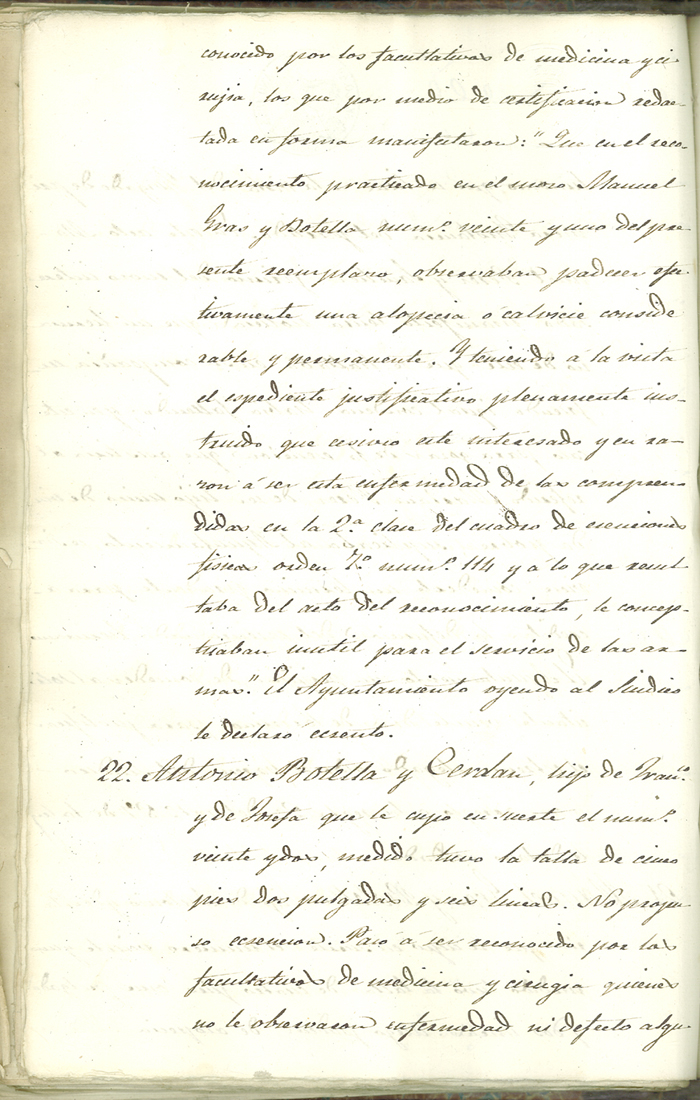 conocido por los facultativos de medicina y ci
rujia, los que por medio de certificacion redac-
tada en forma manifestaron: "Que en el reco-
nocimiento practicado en el moso Manuel
Gras y Botella num.º veinte y uno del pre-
sente reemplazo, observaban padecer efec-
tivamente una alopecia ó calvicie conside
rable y permanente. Y teniendo á la vista
el espediente justificativo plenamente ins-
truido que este interesado y en ra-
zon á ser esta enfermedad de las compren-
didas en la 2.ª clase del cuadro de esenciones
fisicas orden 7.º num.º 114 y á lo que resul-
taba del acto del reconocimiento, le concep-
tuaban inutil para el servicio de las ar-
mas". El Ayuntamiento oyendo al Sindico
le declaró ecsento.
22. Antonio Botella y Cerdan, hijo de Fran.co
y de Josefa que le cupo en suerte el num.º
veinte y dos, medido tuvo la talla de cinco
pies dos pulgadas y seis lineas. No propu-
so ecsencion. Pasó á ser reconocido por los
facultativos de medicina y cirugia quienes
no le observaron enfermedad ni defecto algu-